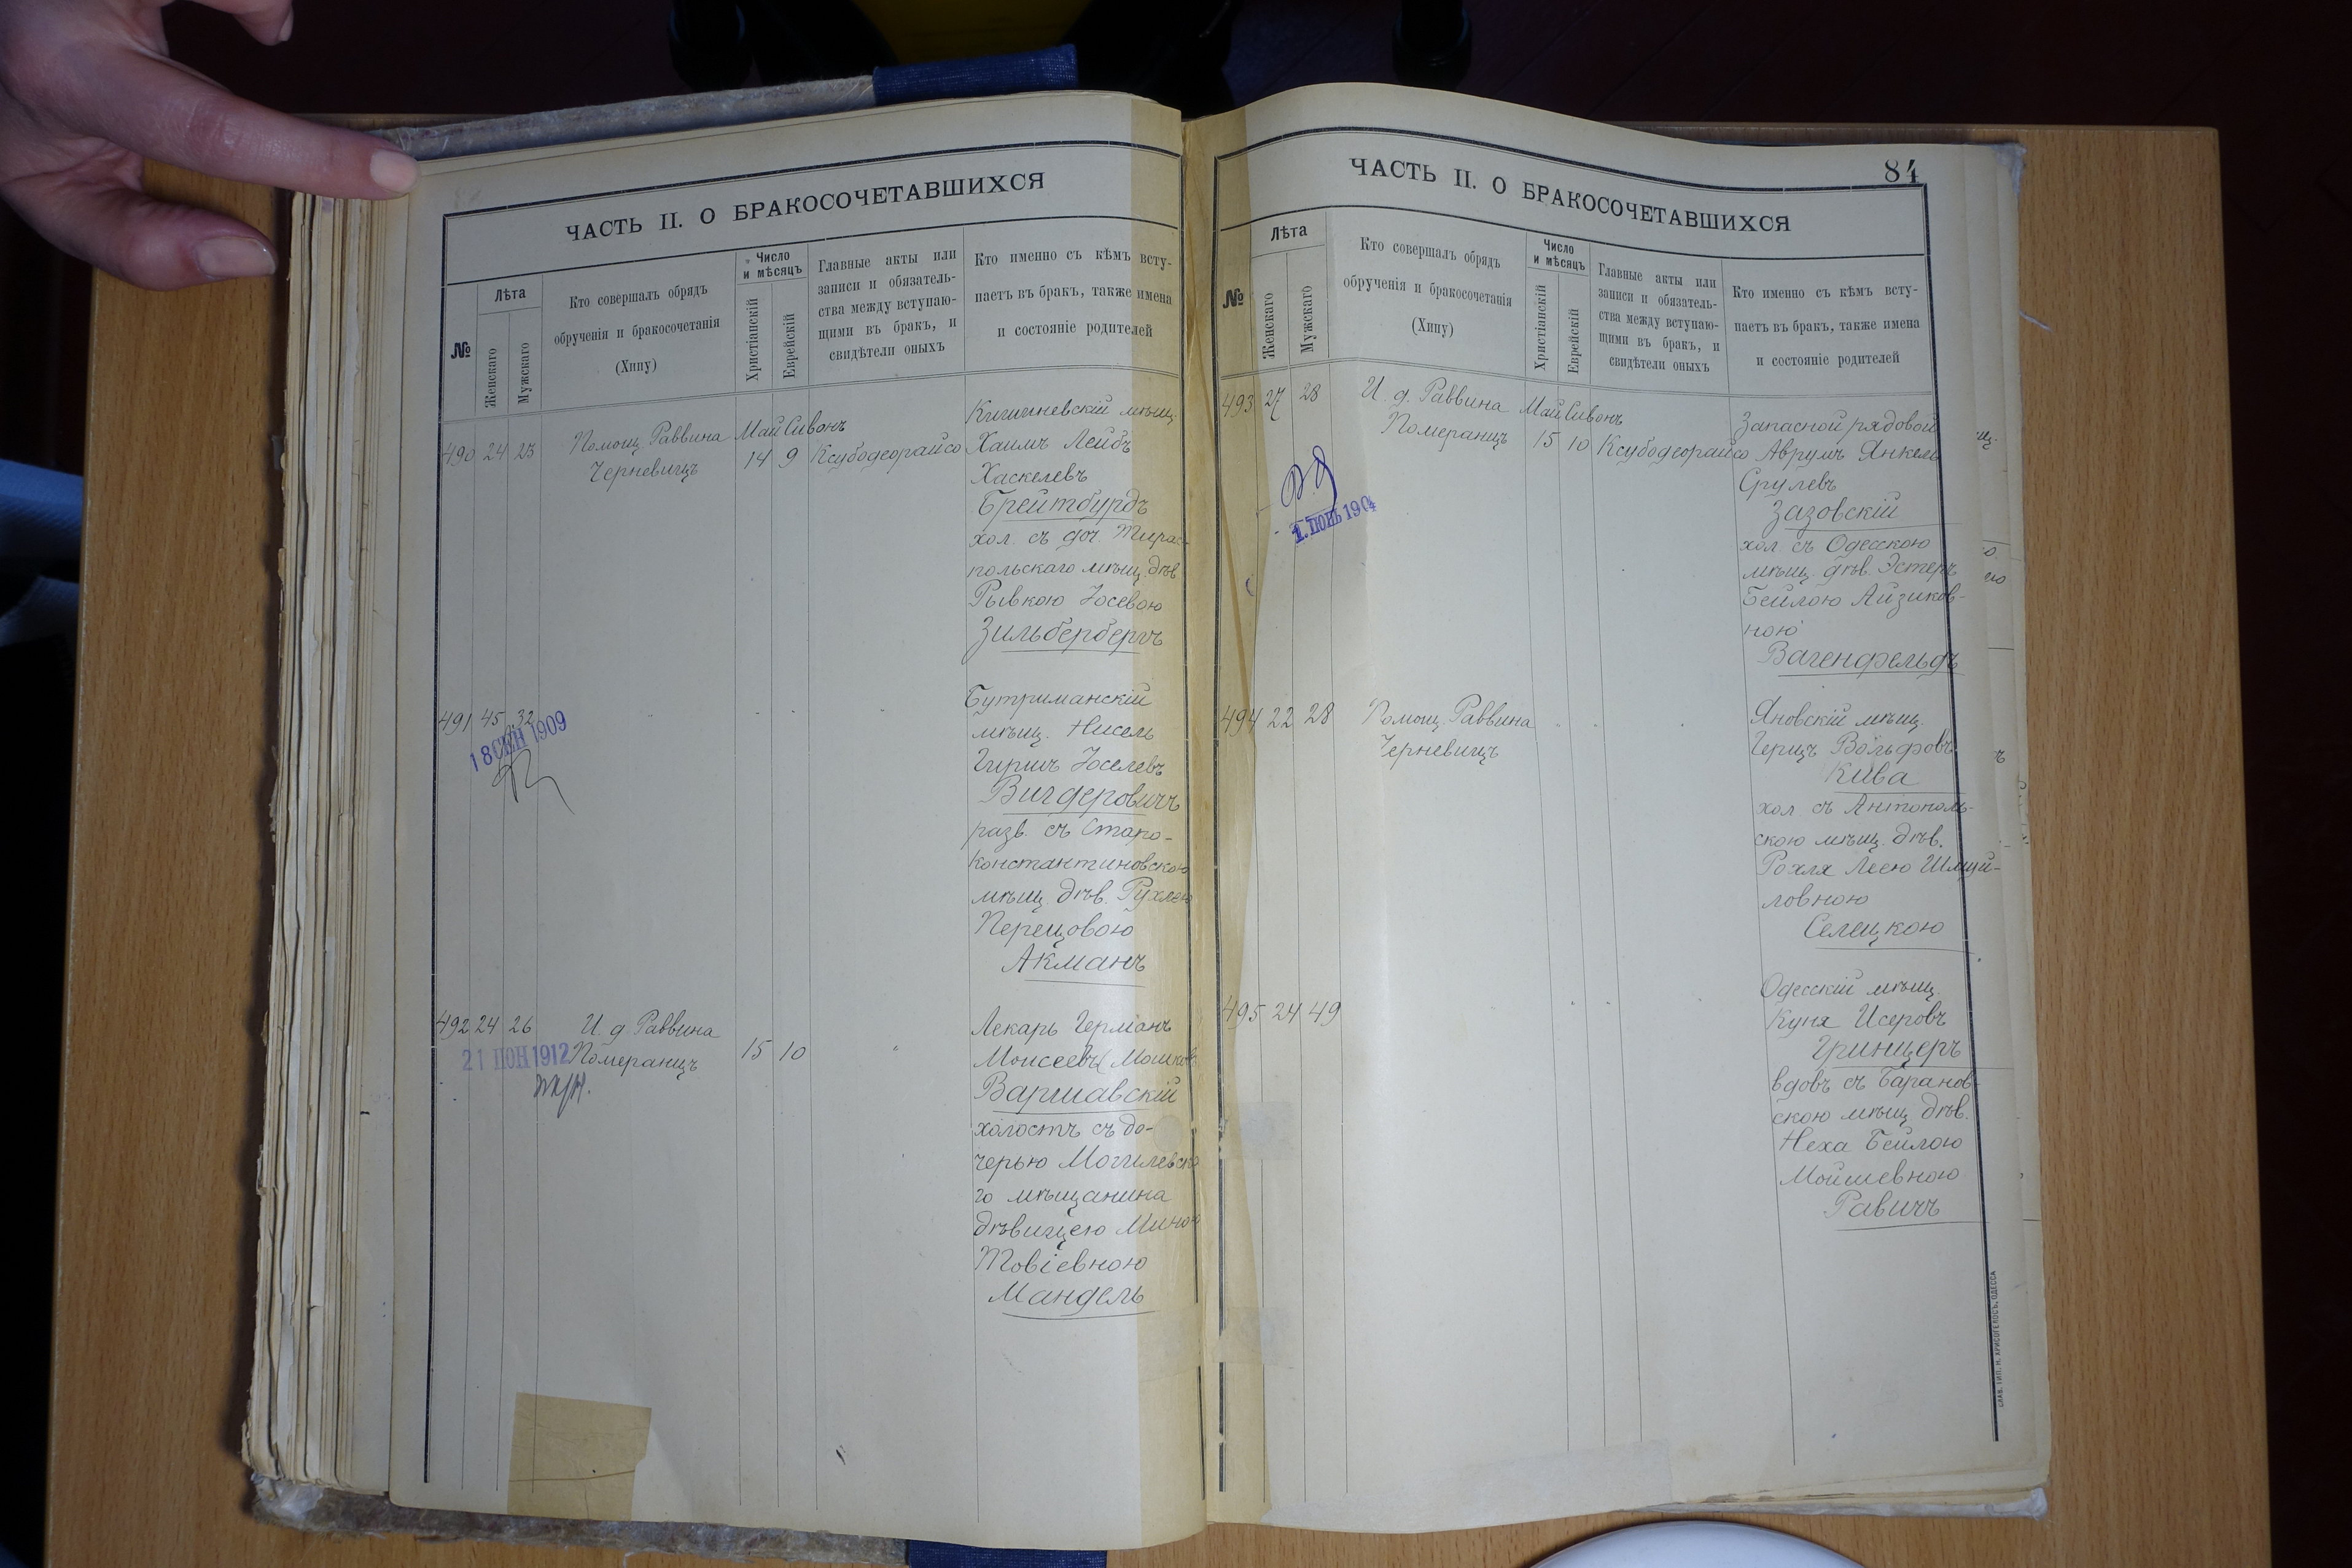 ЧАСТЬ II. О БРАКОСОЧЕТАВШИХСЯ
№
Лѣта
Женскаго
Мужскаго
Кто совершалъ обрядъ
обрученія и бракосочетанія
(Хипу)
Число
и мѣсяцъ
Христіанскій
Еврейскій
Главные акты или
записи и обязатель-
ства между вступаю-
щими въ бракъ, и
свидѣтели оныхъ
Кто именно съ кѣмъ всту-
паетъ въ бракъ, также имена
и состояніе родителей
490 24 23
Помощ. Раввина
Черневицъ
Май Сивонъ
14 9
Ксубодеорайсо
Кишиневскій мѣщ.
Хаимъ Лейбъ
Хаскелевъ
Брейтбурдъ
хол. съ доч. Тирас-
польскаго мѣщ. дѣв
Рывкою Іосевою
Зильбербергъ
491 45 32
18 СЕН 1909
Бутриманскій
мѣщ. Нисель
Гиршъ Іоселевъ
Вигдеровичъ
разв. съ Старо-
константиновскою
мѣщ. дѣв. Рухлею
Перецовою
Акманъ
492 24 26
21 ІЮН 1912
И. д. Раввина
Померанцъ
15 10
Лекарь Германъ
Моисеевъ (Мошков
Варшавскій
холостъ съ до-
черью Могилевска
го мѣщанина
дѣвицею Миною
Товіевною
Мандель
ЧАСТЬ II. О БРАКОСОЧЕТАВШИХСЯ
84
№
Лѣта
Женскаго
Мужскаго
Кто совершалъ обрядъ
обрученія и бракосочетанія
(Хипу)
Число
и мѣсяцъ
Христіанскій
Еврейскій
Главные акты или
записи и обязатель-
ства между вступаю-
щими въ бракъ, и
свидѣтели оныхъ
Кто именно съ кѣмъ всту-
паетъ въ бракъ, также имена
и состояніе родителей
493 27 28
1. ІЮНЬ 1904
И. д. Раввина
Померанцъ
Май Сивонъ
15 10
Ксубодеорайсо
Запасной рядовой
Аврумъ Янкель
Срулевъ
Зазовскій
хол. съ Одесскою
мѣщ. дѣв. Эстеръ
Бейлою Айзиков-
ною
Вагенфельдъ
494 22 28
Помощ. Раввина
Черневицъ
Яновскій мѣщ.
Герцъ Вольфовъ
Кива
хол съ Антополь-
скою мѣщ. дѣв.
Рохля Леею Шмуй-
ловною
Селецкою
495 24 49
Одесскій мѣщ.
Куня Исеровъ
Гринцеръ
вдовъ съ Баранов-
скою мѣщ дѣв.
Неха Бейлою
Мойшевною
Равичъ
СЛАВ. ТИП. Н. ХРИСОГЕЛОСЪ, ОДЕССА